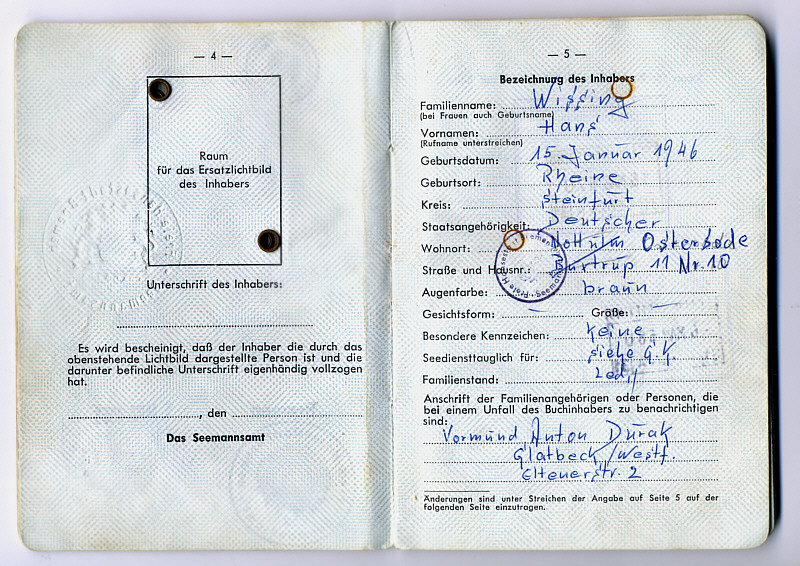 — 4 —
Raum
für das Ersatzlichtbild
des Inhabers
Unterschrift des Inhabers:
Es wird bescheinigt, daß der Inhaber die durch das
obenstehende Lichtbild dargestellte Person ist und die
darunter befindliche Unterschrift eigenhändig vollzogen
hat.
, den
Das Seemannsamt
— 5 —
Bezeichnung des Inhabers
Familienname: Wissing
(bei Frauen auch Geburtsname)
Vornamen: Hans
(Rufname unterstreichen)
Geburtsdatum: 15. Januar 1946
Geburtsort: Rheine
Kreis: Steinfurt
Staatsangehörigkeit: Deutscher
Wohnort: Osterbode
Straße und Hausnr.: 11 Nr. 10
Augenfarbe: braun
Gesichtsform: — Größe: —
Besondere Kennzeichen: keine
Seediensttauglich für: siehe G.K.
Familienstand: Led.
Anschrift der Familienangehörigen oder Personen, die
bei einem Unfall des Buchinhabers zu benachrichtigen
sind:
Vormund Anton Durak
Glatbeck/Westf.
Eltenerstr. 2
Änderungen sind unter Streichen der Angabe auf Seite 5 auf der
folgenden Seite einzutragen.